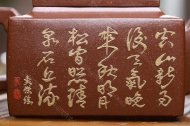 空山新雨
後天氣晚
來秋明月
松間照清
泉石上流